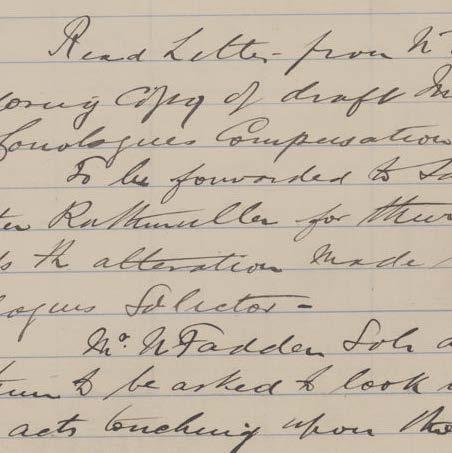 Read Letter from Mr
copy of draft
Conologues Compensation
To be forwarded to
Rathmuller for their
the alteration made
logues Solicitor -
Mr McFadden Solr
to be asked to look
acts touching upon the